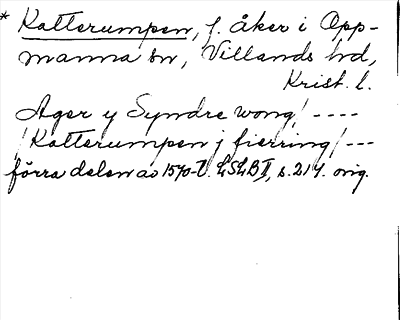 * Katterumpen, f. åker i Opp-
manna sn, Villands hd,
Krist. l.
Ager y Syndre wong/ ----
/Katterumpen j fierring/ ---
förra delen av 1570-t. LSLB II, s. 214. orig.